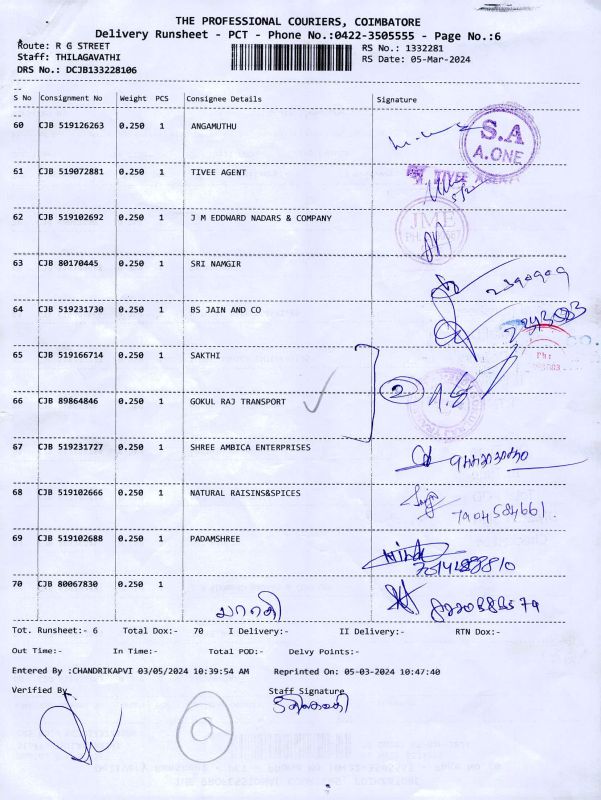 THE PROFESSIONAL COURIERS, COIMBATORE
Delivery Runsheet - PCT - Phone No.:0422-3505555 - Page No.:6
Route: R G STREET
Staff: THILAGAVATHI
DRS No.: DCJB133228106
RS No.: 1332281
RS Date: 05-Mar-2024
S No Consignment No Weight PCS Consignee Details Signature
60 CJB 519126263 0.250 1 ANGAMUTHU
S.A
A.ONE
61 CJB 519072881 0.250 1 TIVEE AGENT
TIVEE
62 CJB 519102692 0.250 1 J M EDDWARD NADARS & COMPANY
JME
63 CJB 80170445 0.250 1 SRI NAMGIR
64 CJB 519231730 0.250 1 BS JAIN AND CO
65 CJB 519166714 0.250 1 SAKTHI
Ph:
2
66 CJB 89864846 0.250 1 GOKUL RAJ TRANSPORT
67 CJB 519231727 0.250 1 SHREE AMBICA ENTERPRISES
68 CJB 519102666 0.250 1 NATURAL RAISINS&SPICES
7904584661.
69 CJB 519102688 0.250 1 PADAMSHREE
70 CJB 80067830 0.250 1
Tot. Runsheet:- 6 Total Dox:- 70 I Delivery:- II Delivery:- RTN Dox:-
Out Time:- In Time:- Total POD:- Delvy Points:-
Entered By :CHANDRIKAPVI 03/05/2024 10:39:54 AM Reprinted On: 05-03-2024 10:47:40
Verified By Staff Signature